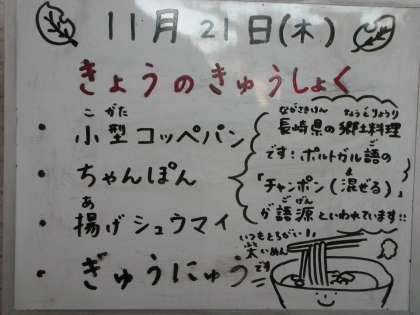 11月21日(木)
きょうのきゅうしょく
・小型コッペパン
こがた
・ちゃんぽん
・揚げシュウマイ
あ
・ぎゅうにゅう
ながさきけん きょうどりょうり
長崎県の郷土料理
です!ポルトガル語の
ご
「チャンポン(混ぜる)」
ま
が語源といわれています!!
ごげん
いつもとちがい!
太いめん
ふと
です